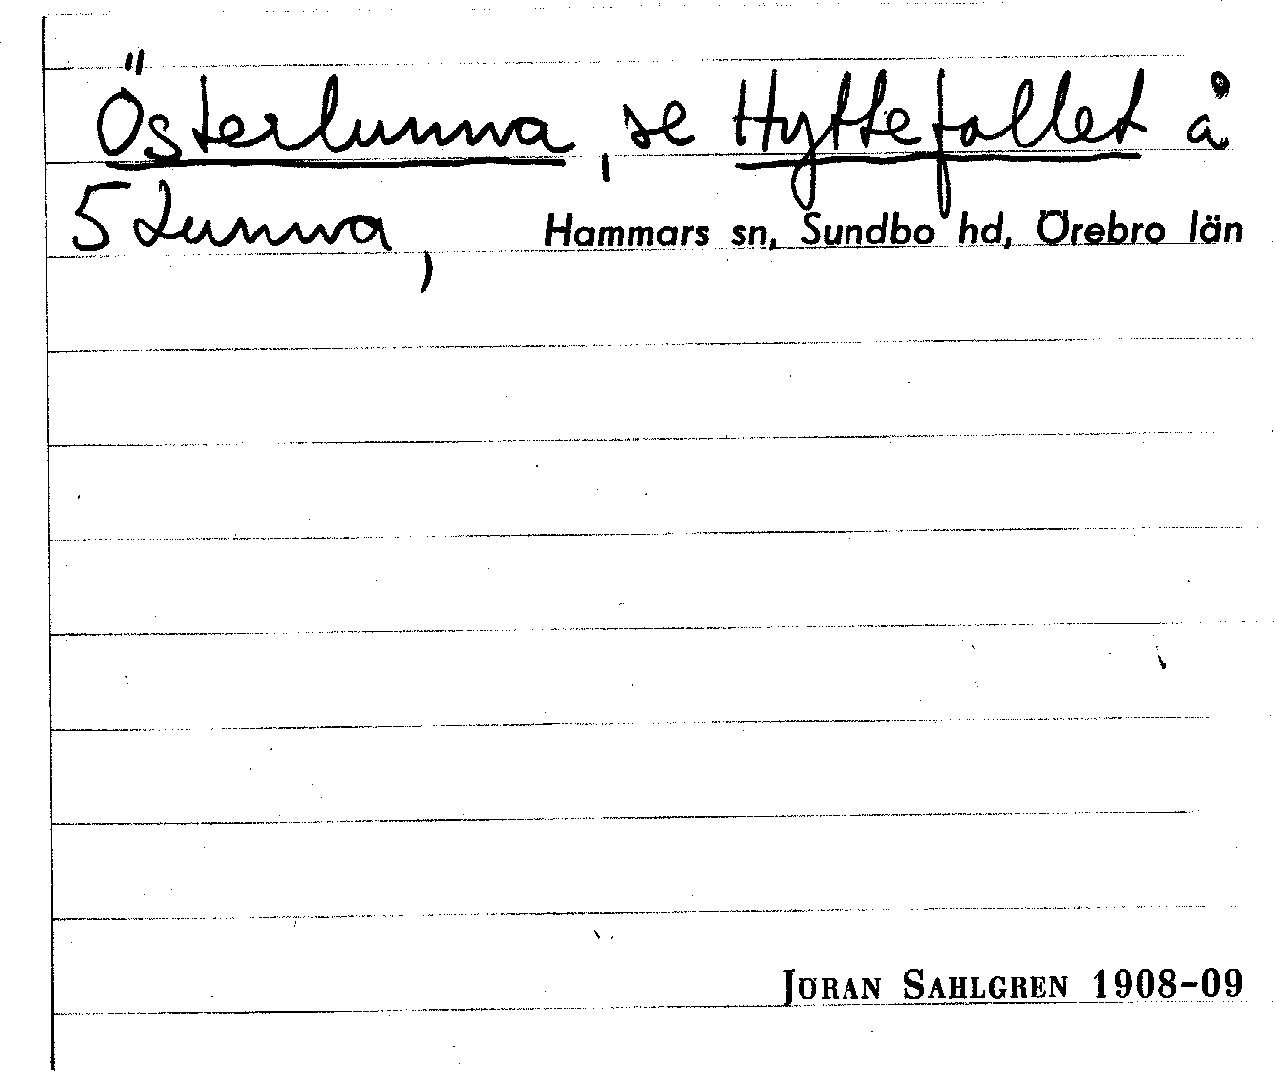 Österlunna, se Hyttefallet å
5 Lunna, Hammars sn, Sundbo hd, Örebro län
JÖRAN SAHLGREN 1908-09